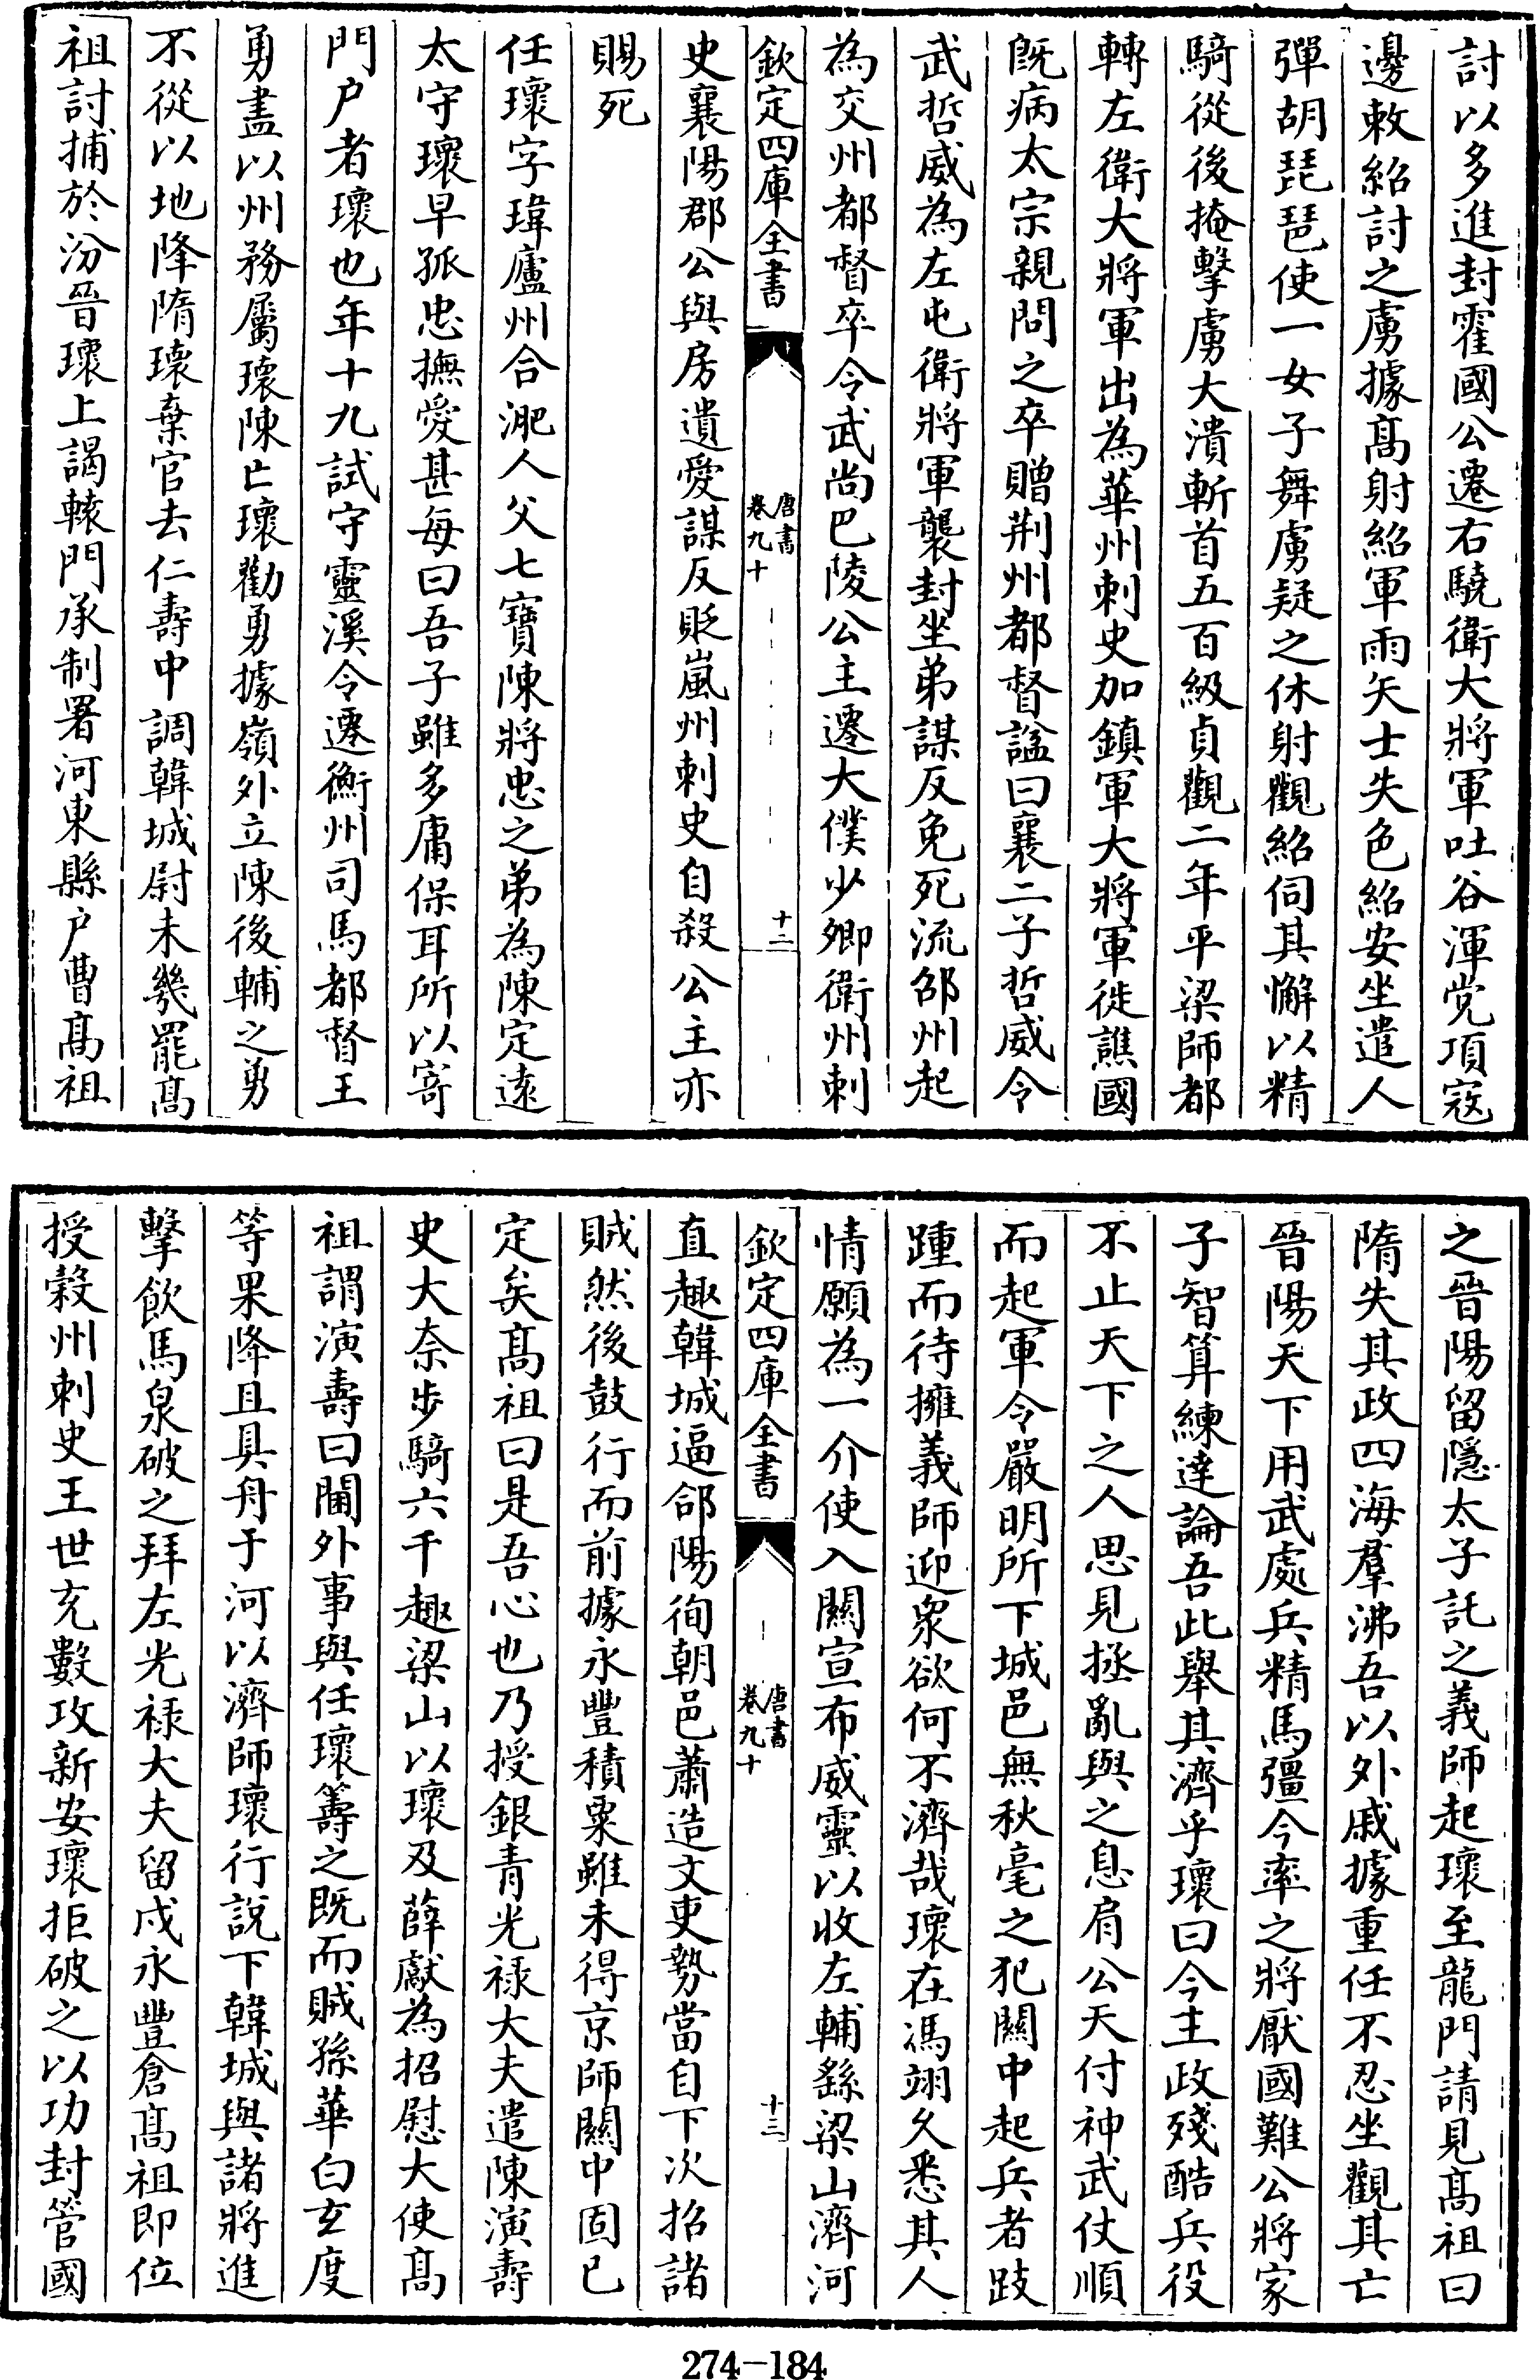 討以多進封霍國公遷右驍衛大將軍吐谷渾党項寇
邊敕紹討之虜據髙射紹軍雨矢士失色紹安坐遣人
彈胡琵琶使一女子舞虜疑之休射觀紹伺其懈以精
騎從後掩擊虜大潰斬首五百級貞觀二年平梁師都
轉左衛大將軍出為華州刺史加鎮軍大將軍徙譙國
既病太宗親問之卒贈荆州都督諡曰襄二子哲威令
武哲威為左屯衛將軍襲封坐弟謀反免死流邵州起
為交州都督卒令武尚巴陵公主遷大僕少卿衛州刺
欽定四庫全書
唐書
卷九十
十二
史襄陽郡公與房遺愛謀反貶嵐州刺史自殺公主亦
賜死
任瓌字瑋廬州合淝人父七寶陳將忠之弟為陳定逺
太守瓌早孤忠撫愛甚每曰吾子雖多庸保耳所以寄
門户者瓌也年十九試守靈溪令遷衡州司馬都督王
勇盡以州務屬瓌陳亡瓌勸勇據嶺外立陳後輔之勇
不從以地降隋瓌棄官去仁壽中調韓城尉未幾罷髙
祖討捕於汾晉瓌上謁轅門承制署河東縣户曹髙祖
之晉陽留隱太子託之義師起瓌至龍門請見髙祖曰
隋失其政四海羣沸吾以外戚據重任不忍坐觀其亡
晉陽天下用武處兵精馬彊今率之將厭國難公將家
子智算練達論吾此舉其濟乎瓌曰今主政殘酷兵役
不止天下之人思見拯亂與之息肩公天付神武仗順
而起軍令嚴明所下城邑無秋毫之犯關中起兵者跂
踵而待擁義師迎衆欲何不濟哉瓌在馮翊久悉其人
情願為一介使入關宣布威靈以收左輔繇梁山濟河
欽定四庫全書
唐書
卷九十
十三
直趣韓城逼郃陽徇朝邑蕭造文吏勢當自下次招諸
賊然後鼓行而前據永豐積粟雖未得京師關中固已
定矣髙祖曰是吾心也乃授銀青光禄大夫遣陳演壽
史大奈步騎六千趣梁山以瓌及薛獻為招慰大使髙
祖謂演壽曰閫外事與任瓌籌之既而賊孫華白玄度
等果降且具舟于河以濟師瓌行說下韓城與諸將進
擊飲馬泉破之拜左光禄大夫留戍永豐倉髙祖即位
授穀州刺史王世充數攻新安瓌拒破之以功封管國
274-184